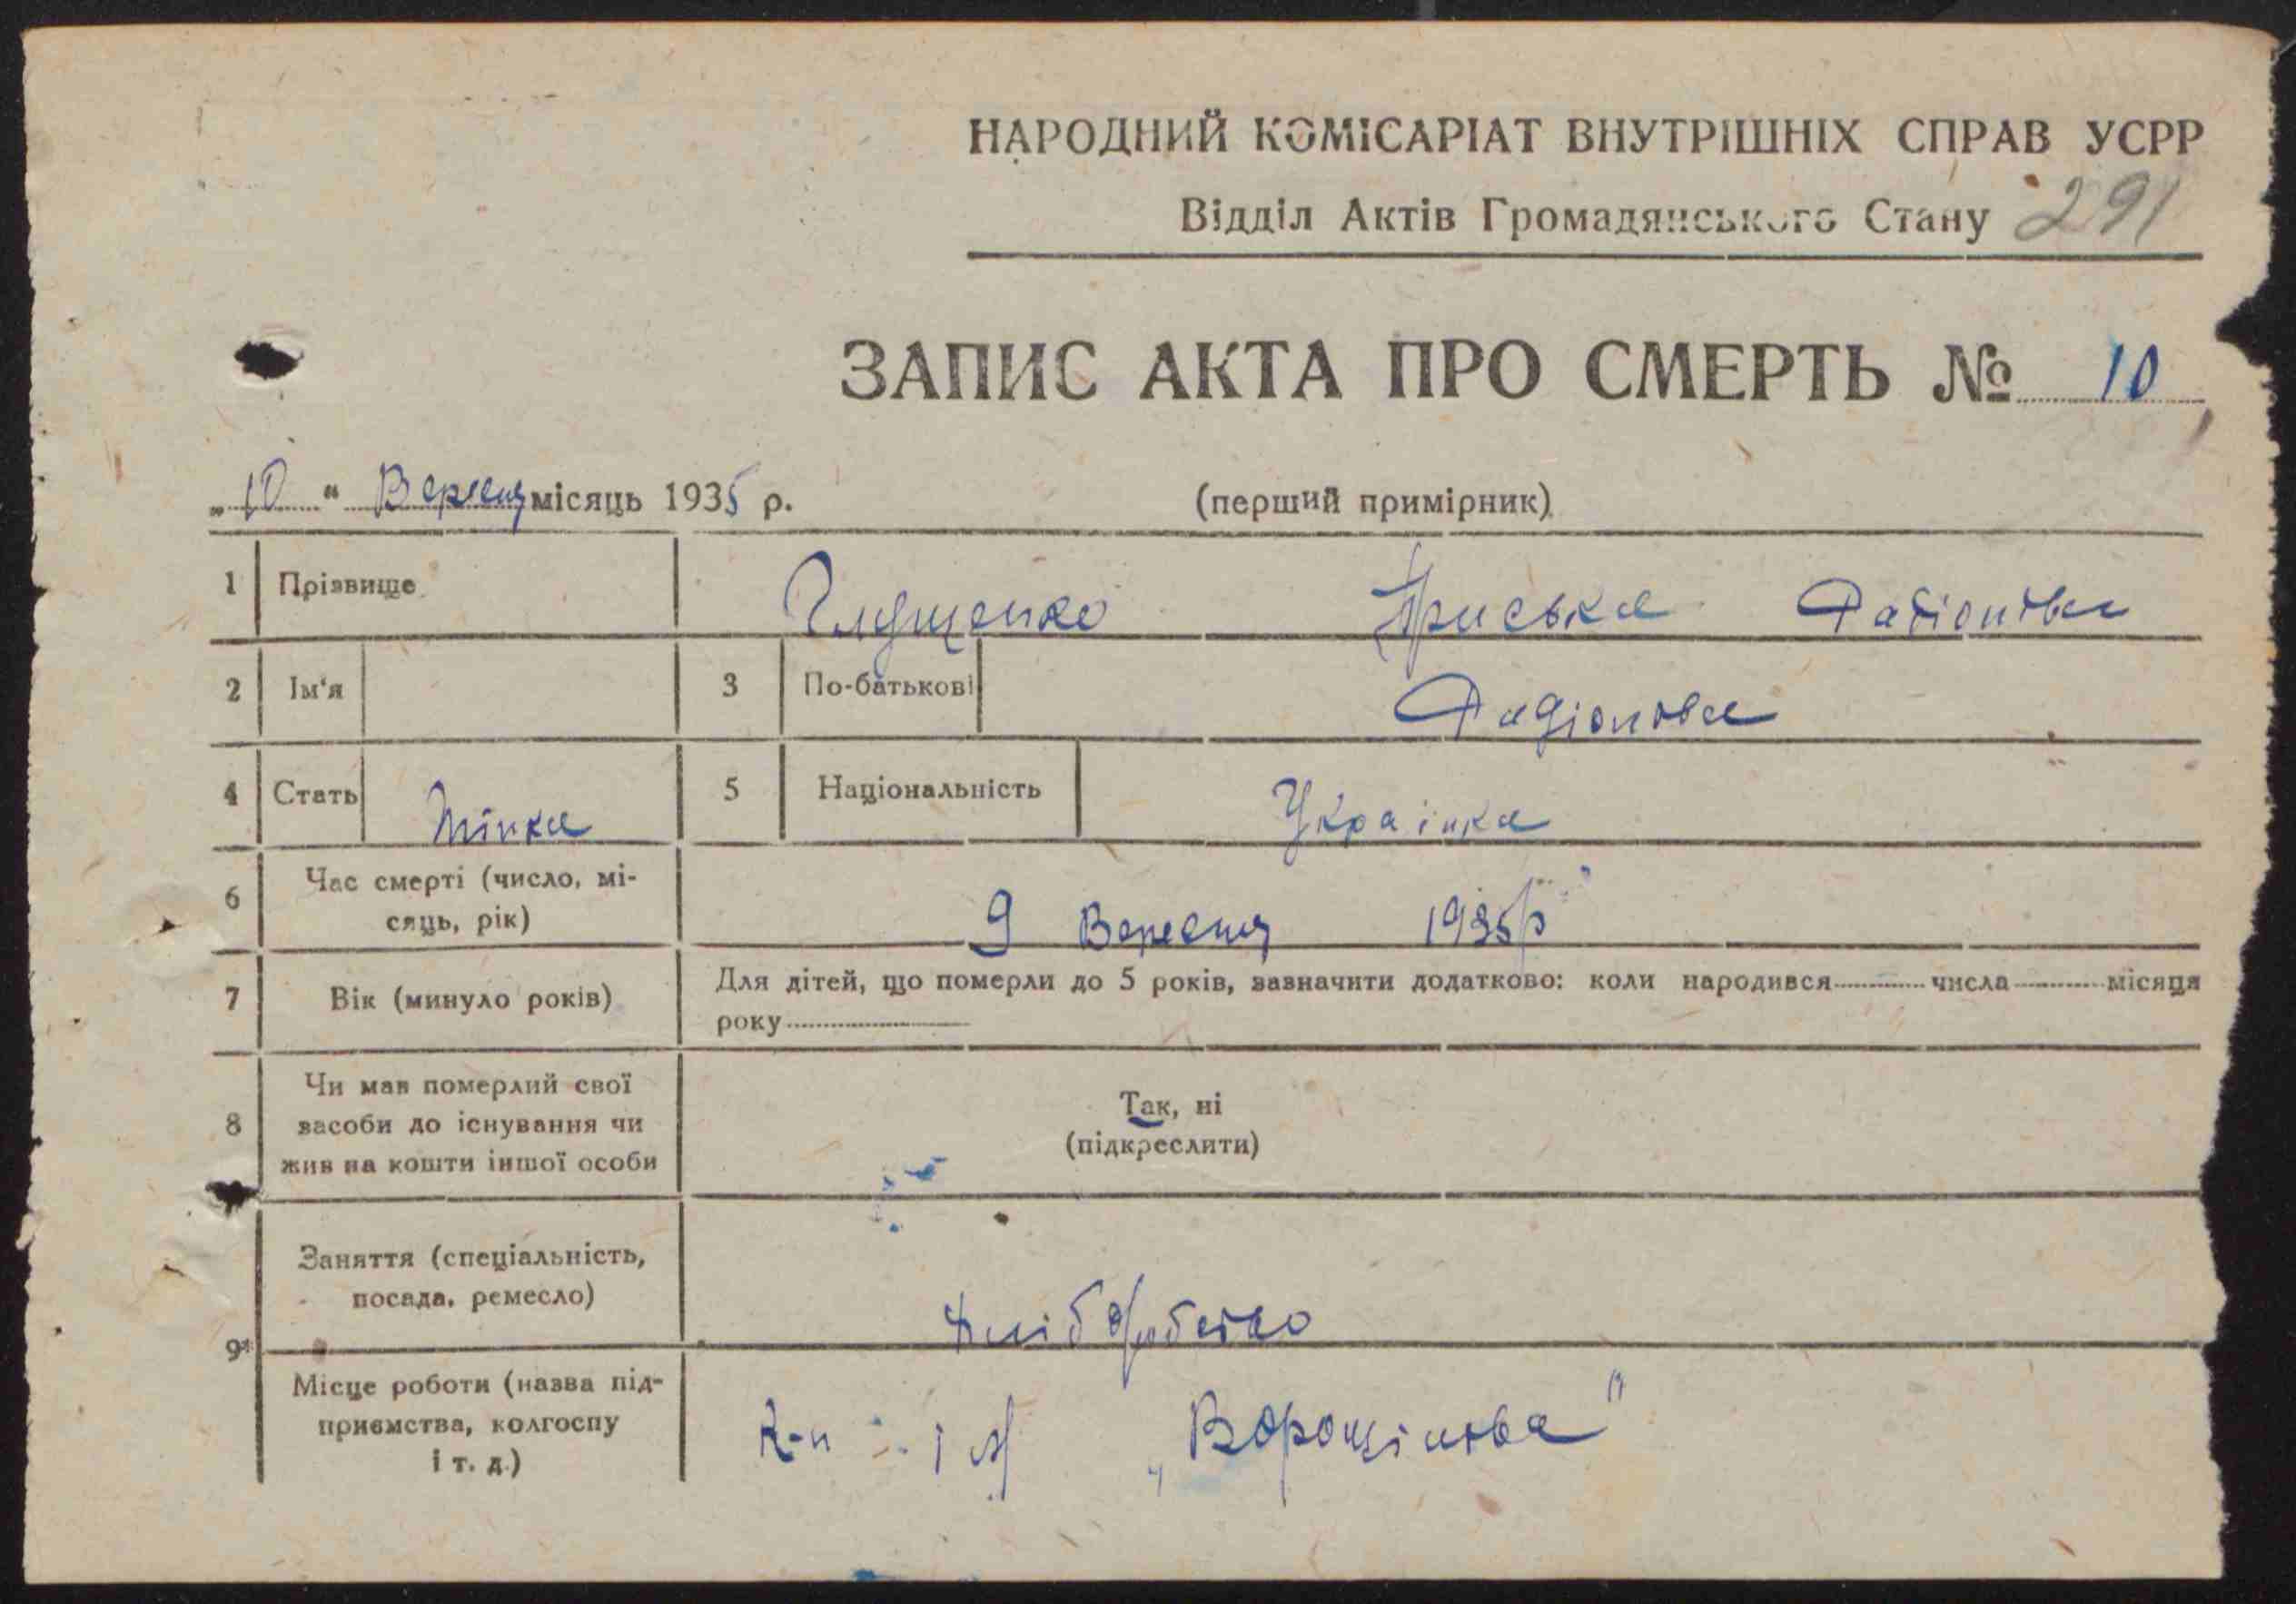 НАРОДНИЙ КОМІСАРІАТ ВНУТРІШНІХ СПРАВ УСРР
Відділ Актів Громадянського Стану 291
ЗАПИС АКТА ПРО СМЕРТЬ № 10
„10“ Вересня місяць 1935 р. (перший примірник)
1 Прізвище Глущенко Приська
2 Ім‘я 3 По-батькові
4 Стать Жінка 5 Національність Українка
6 Час смерті (число, мі-
сяць, рік) 9 Вересня 1935р
7 Вік (минуло років) Для дітей, що померли до 5 років, зазначити додатково: коли народився числа місяця
року
8 Чи мав померлий свої
засоби до існування чи
жив на кошти іншої особи
Так, ні
(підкреслити)
9 Заняття (спеціальність,
посада, ремесло)
Місце роботи (назва під-
приємства, колгоспу
і т. д.)